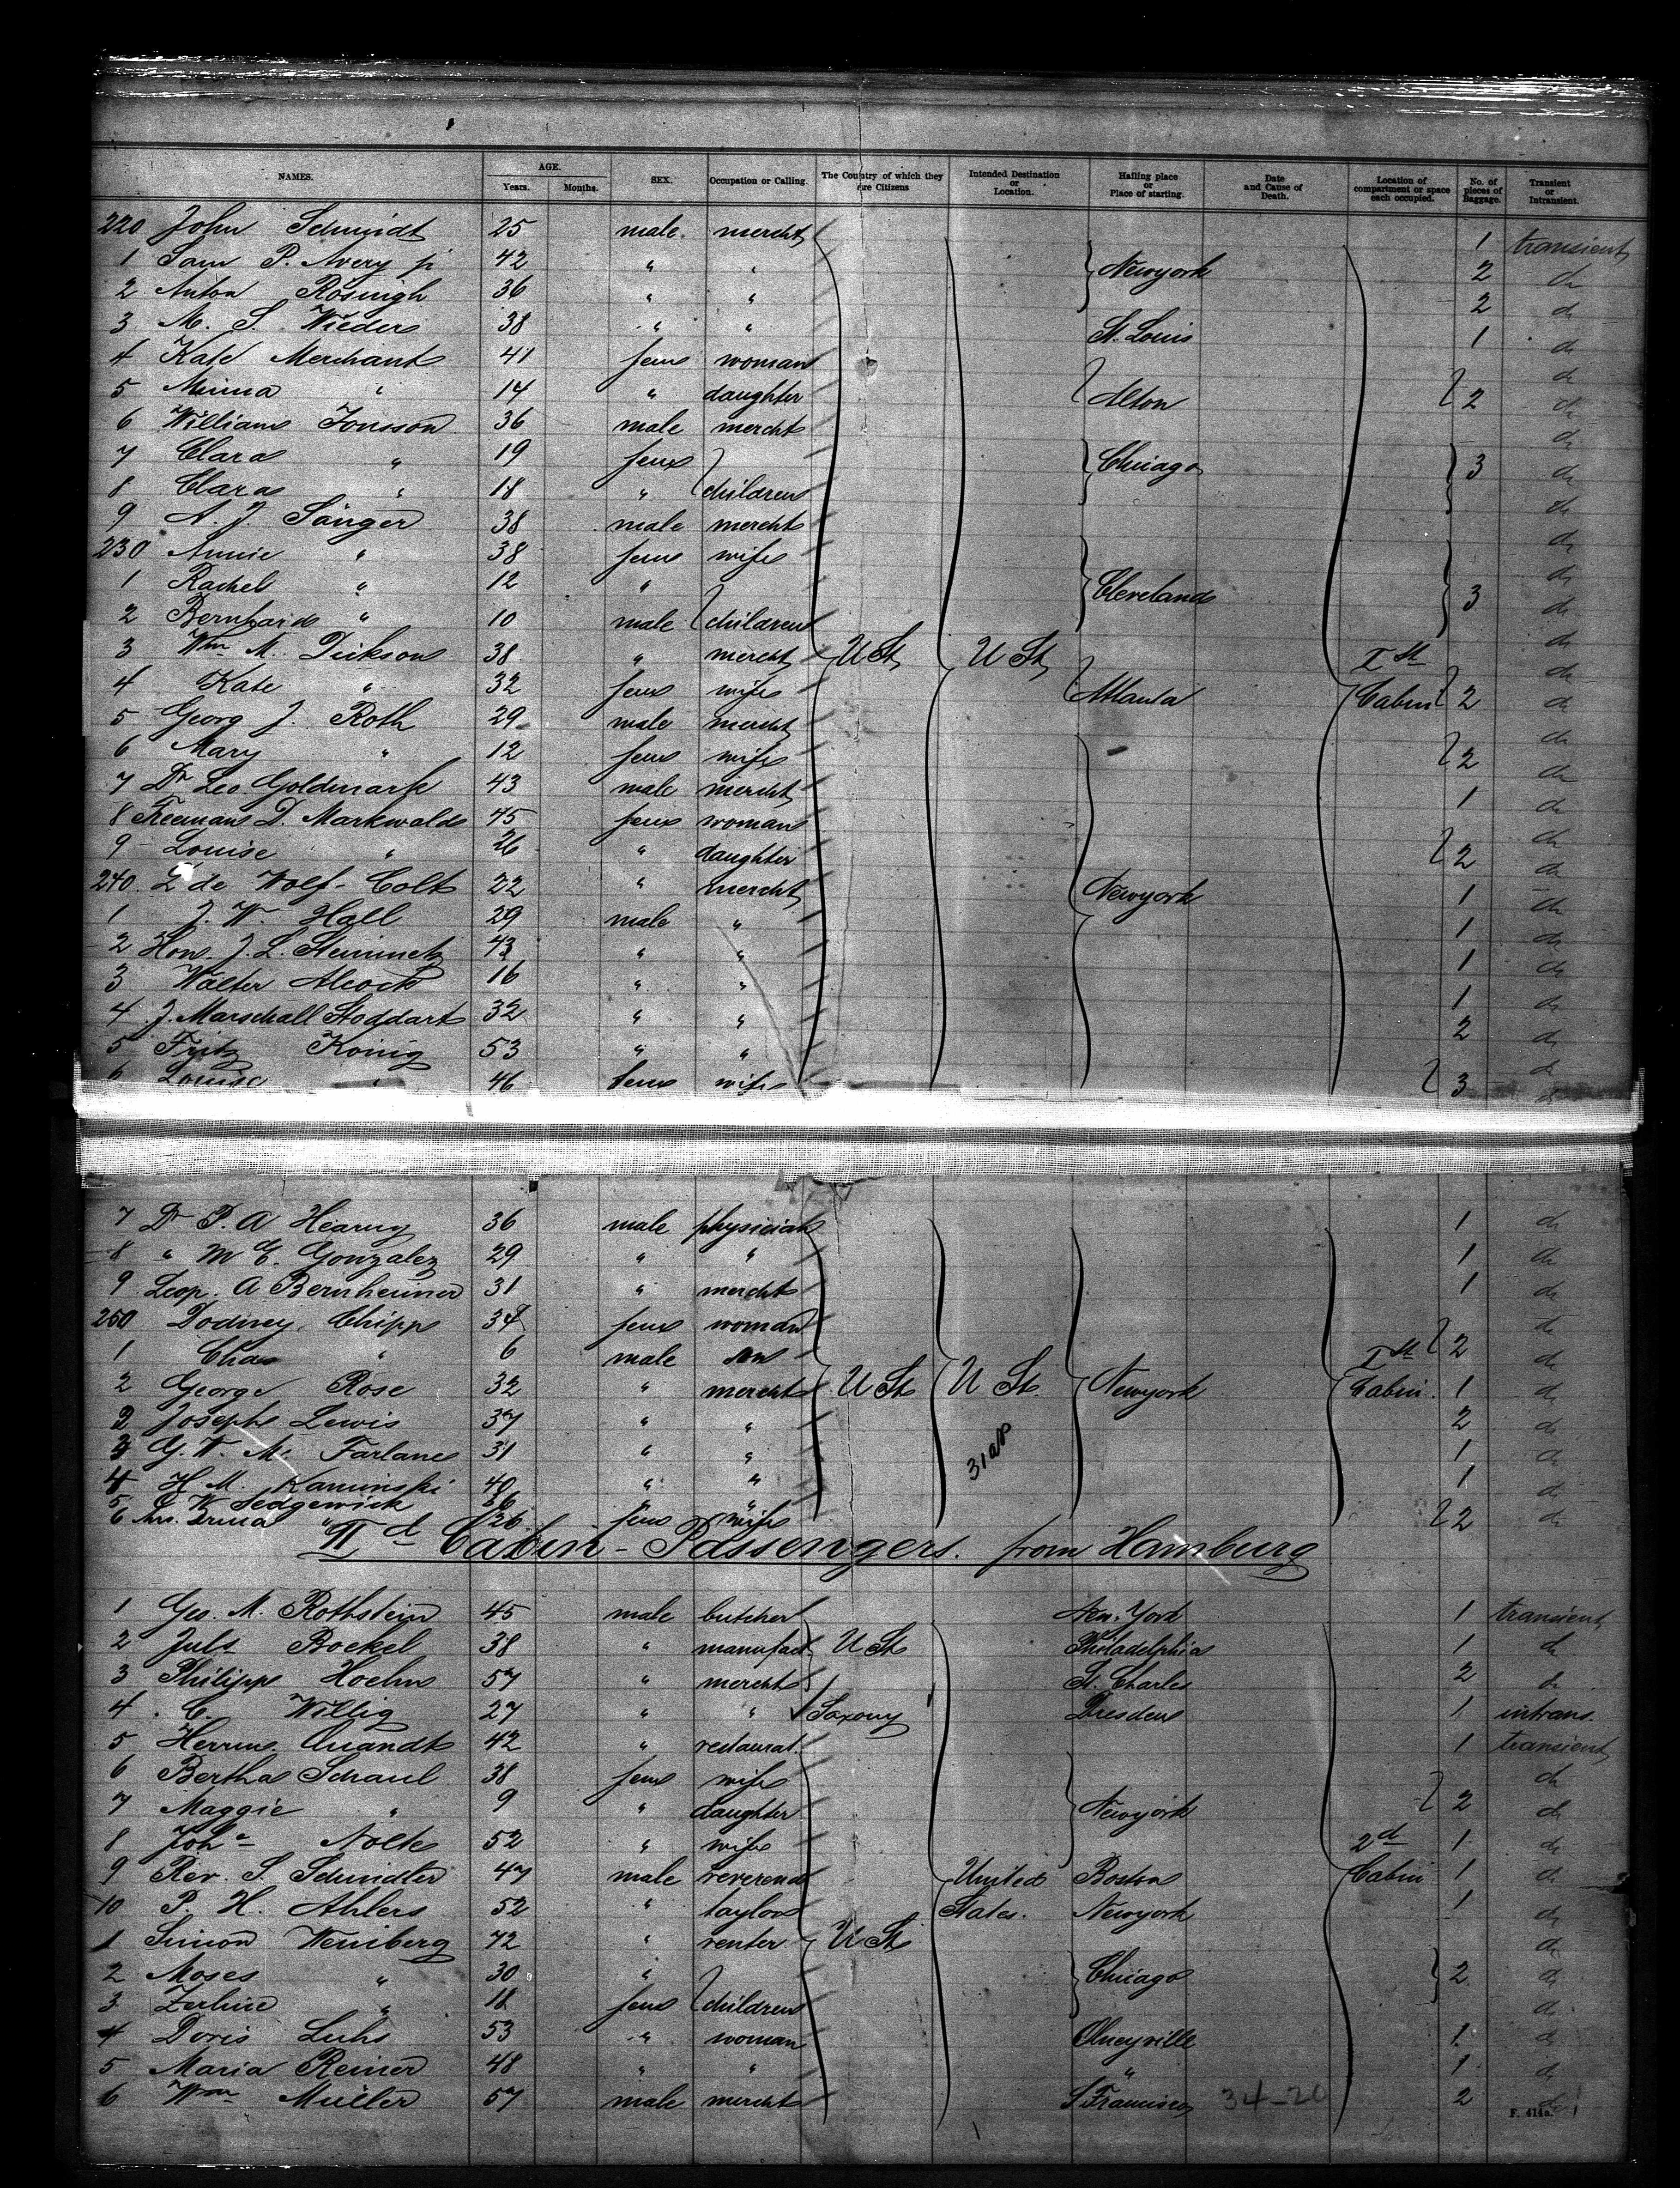 NAMES. AGE. Years. Months. SEX. Occupation or Calling. The Country of which they are Citizens Intended Destination or Location. Hailing place or Place of starting. Date and Cause of Death. Location of compartment or space each occupied. No. of pieces of Baggage. Transient or Intransient.
220 John Schmidt 25 male mercht 1 transient
1 Sam P. Avery jr 42 " " Newyork 2 do
2 Anton Rosingh 36 " " 2 do
3 M. S. Wieder 38 " " St. Louis 1 do
4 Kate Merchant 41 fem woman do
5 Minna " 14 " daughter Alton 2 do
6 William Jonsson 36 male mercht do
7 Clara " 19 fem Chicago 3 do
8 Clara " 18 " children do
9 A. J. Sänger 38 male mercht do
230 Annie " 38 fem wife do
1 Rachel " 12 " Cleveland 3 do
2 Bernhard " 10 male children do
3 Wm M. Dickson 38 " mercht U St U St Ist do
4 Kate " 32 fem wife Atlanta Cabin 2 do
5 Georg J. Roth 29 male mercht do
6 Mary " 12 fem wife 2 do
7 Dr Leo Goldmark 43 male mercht 1 do
8 D. Markwald 45 fem woman do
9 Louise " 26 " daughter 2 do
240 L de Wolf-Colt 22 " mercht Newyork 1 do
1 J. W. Hall 29 male " 1 do
2 Hon. J. L. Steinmetz 43 " " 1 do
3 Walter Alcock 16 " " 1 do
4 J. Marschall Stoddart 32 " " 2 do
5 Fritz König 53 " " do
6 Louise " 46 fem wife 3 do
7 Dr P. A 36 male physician 1 do
8 " M E. Gonzalez 29 " " 1 do
9 Leop. A Bernheimer 31 " mercht 1 do
250 Chipp 34 fem woman do
1 Chas " 6 male son Ist 2 do
2 George Rose 32 " mercht U St U St. Newyork Cabin. 1 do
3 Joseph Lewis 37 " " 2 do
G. W. Mc Farlane 31 " " 1 do
4 H. M. Kaminski 40 " " 1 do
5 W Sedgewick 36 " do
6 Mrs. " 26 fem wife 2 do
IId Cabin-Passengers. from Hamburg
1 Geo. M. Rothstein 45 male butcher New-York 1 transient
2 Juls Boekel 38 " manufact. U St Philadelphia 1 do
3 Philipp Hoehn 57 " mercht St. Charles 2 do
4 C. Willig 27 " " Saxony Dresden 1 intrans.
5 Herrm. Quandt 42 " restaurat. 1 transient
6 Bertha Schaul 38 fem wife do
7 Maggie " 9 " daughter Newyork 2 do
8 Joha Nolte 52 " wife 2d 1 do
9 Rev. S. Schindler 47 male reverend United Boston Cabin 1 do
10 P. H. Ahlers 52 " taylor States. Newyork 1 do
1 Simon Weinberg 72 " renter U St do
2 Moses " 30 " Chicago 2 do
3 Zerline " 18 fem children do
4 Doris Luhs 53 " woman Olneyville 1 do
5 Maria Reiner 48 " " " 1 do
6 Wm Müller 57 male mercht S Francisco 34-20 2 do
F. 414a.